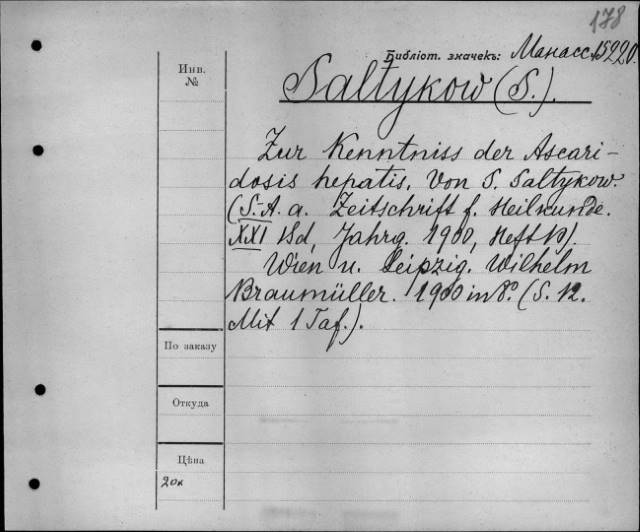 178
Библіот. значекъ: Манасс. 15220.
Инв.
№
Saltykow (S.).
Zur Kenntniss der Ascari-
dosis hepatis. Von S. Saltykow.
(S.-A. a. Zeitschrift f. Heilkunde.
XXI Bd, Jahrg. 1900, Heft 10).
Wien u. Leipzig. Wilhelm
Braumüller. 1900 in 8°. (S. 12.
Mit 1 Taf.).
По заказу
Откуда
Цѣна
20к